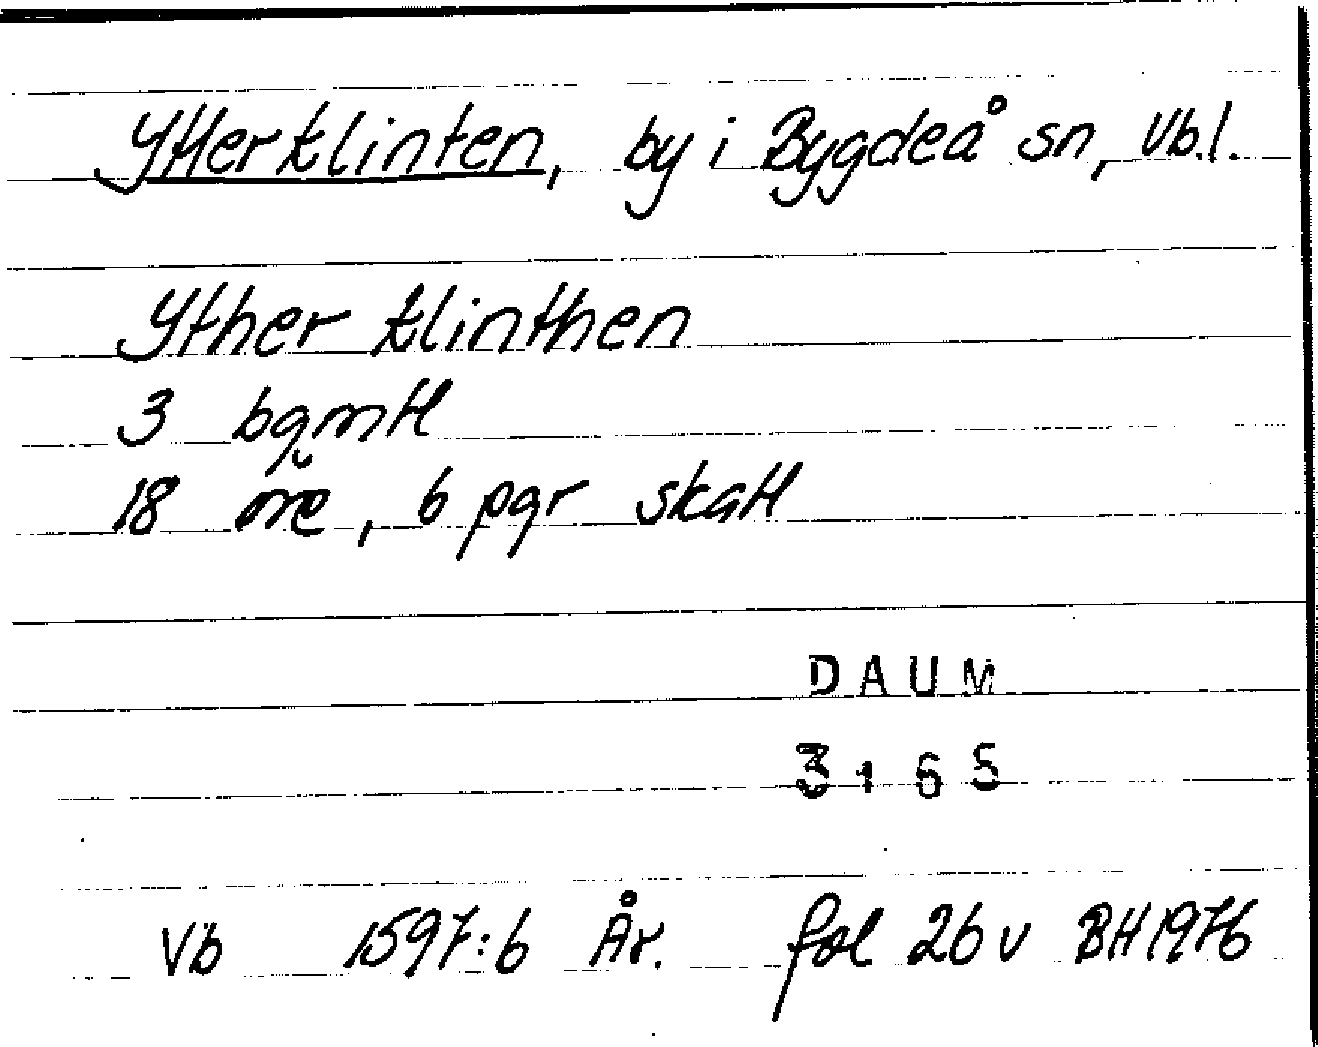 Ytterklinten, by i Bygdeå sn, Vb.l.
Yther klinthen
3 bgmtl
18 öre, 6 pgr skatt
DAUM
3165
Vb 1597:6 År. fol 26 v BH 1976